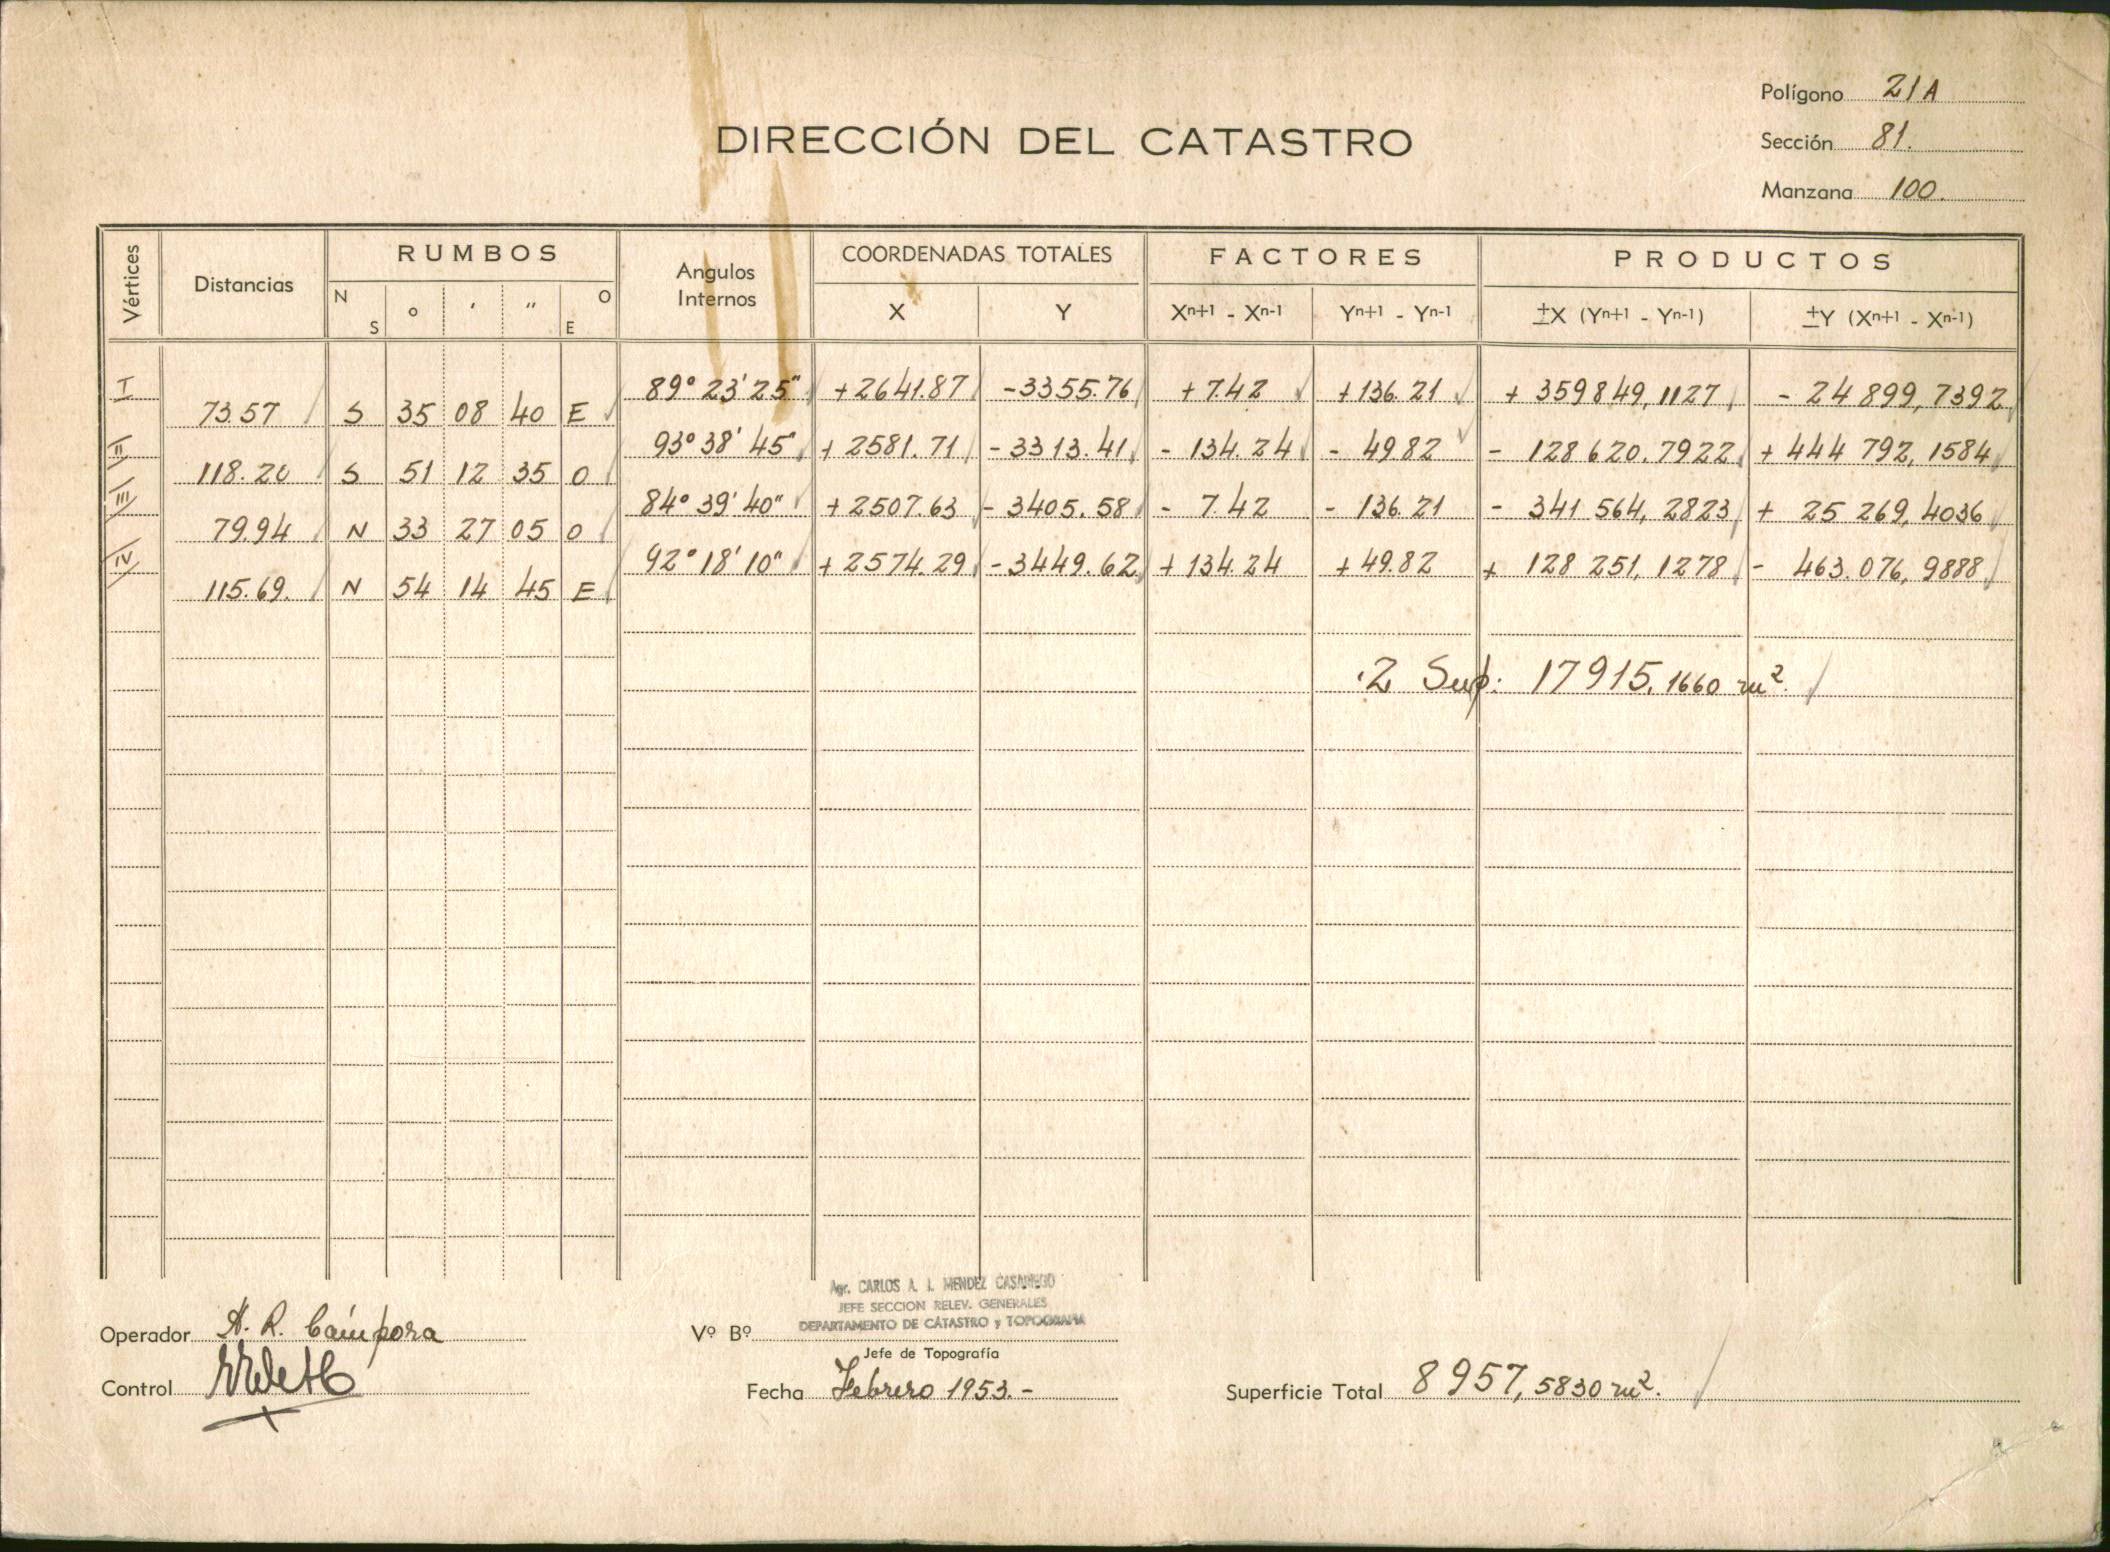 Polígono 21A
DIRECCIÓN DEL CATASTRO
Sección 81.
Manzana 100.
Vértices Distancias RUMBOS Angulos Internos COORDENADAS TOTALES FACTORES PRODUCTOS
N S ° ' " O E X Y Xn+1 - Xn-1 Yn+1 - Yn-1 ±X (Yn+1 - Yn-1) ±Y (Xn+1 - Xn-1)
I 89° 23' 25" +2641.87 -3355.76 +7.42 +136.21 + 359849,1127 - 24 899,7392
73.57 S 35 08 40 E
II 93° 38' 45" + 2581.71 - 3313.41 - 134.24 - 49.82 - 128 620.7922 + 444 792,1584
118.20 S 51 12 35 O
III 84° 39' 40" + 2507.63 - 3405.58 - 7.42 - 136.21 - 341 564,2823 + 25 269,4036
79.94 N 33 27 05 O
IV 92° 18' 10" + 2574.29 - 3449.62 + 134.24 + 49.82 + 128 251,1278 - 463.076,9888
115.69. N 54 14 45 E
2 Sup: 17915,1660 m².
Agr. CARLOS A. I. MENDEZ CASARIEGO
JEFE SECCION RELEV. GENERALES
DEPARTAMENTO DE CATASTRO y TOPOGRAFIA
Operador A. R. Cámpora
Vº Bº
Jefe de Topografía
Control
Fecha Febrero 1953.-
Superficie Total 8957,5830 m².